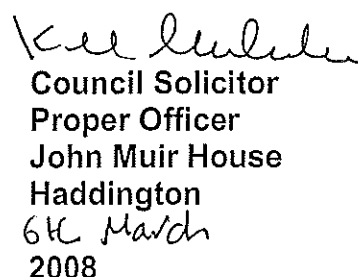 Council Solicitor
Proper Officer
John Muir House
Haddington
6th March
2008